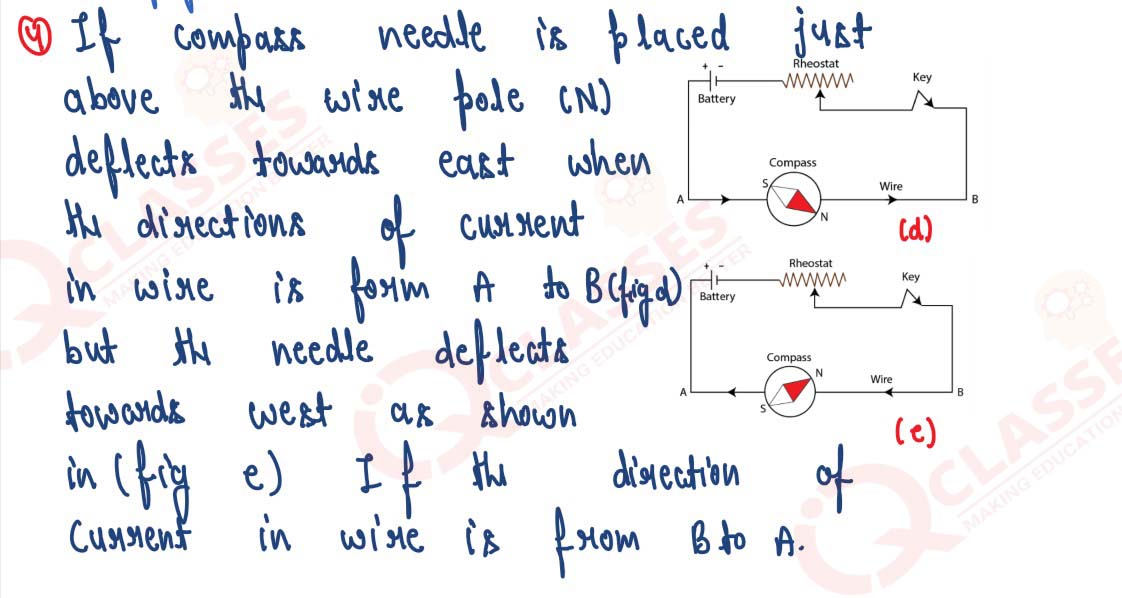 (4) If compass needle is placed just
above the wire pole (N)
deflects towards east when
the directions of current
in wire is form A to B (fig d)
but the needle deflects
towards west as shown
in (fig e) If the direction of
Current in wire is from B to A.
+ -
Battery
Rheostat
Key
Compass
S
N
Wire
A
B
(d)
+ -
Battery
Rheostat
Key
Compass
N
S
Wire
A
B
(e)
CLASSES
MAKING EDUCATION
CLASSES
MAKING EDUCATION
CLASSES
MAKING EDUCATION